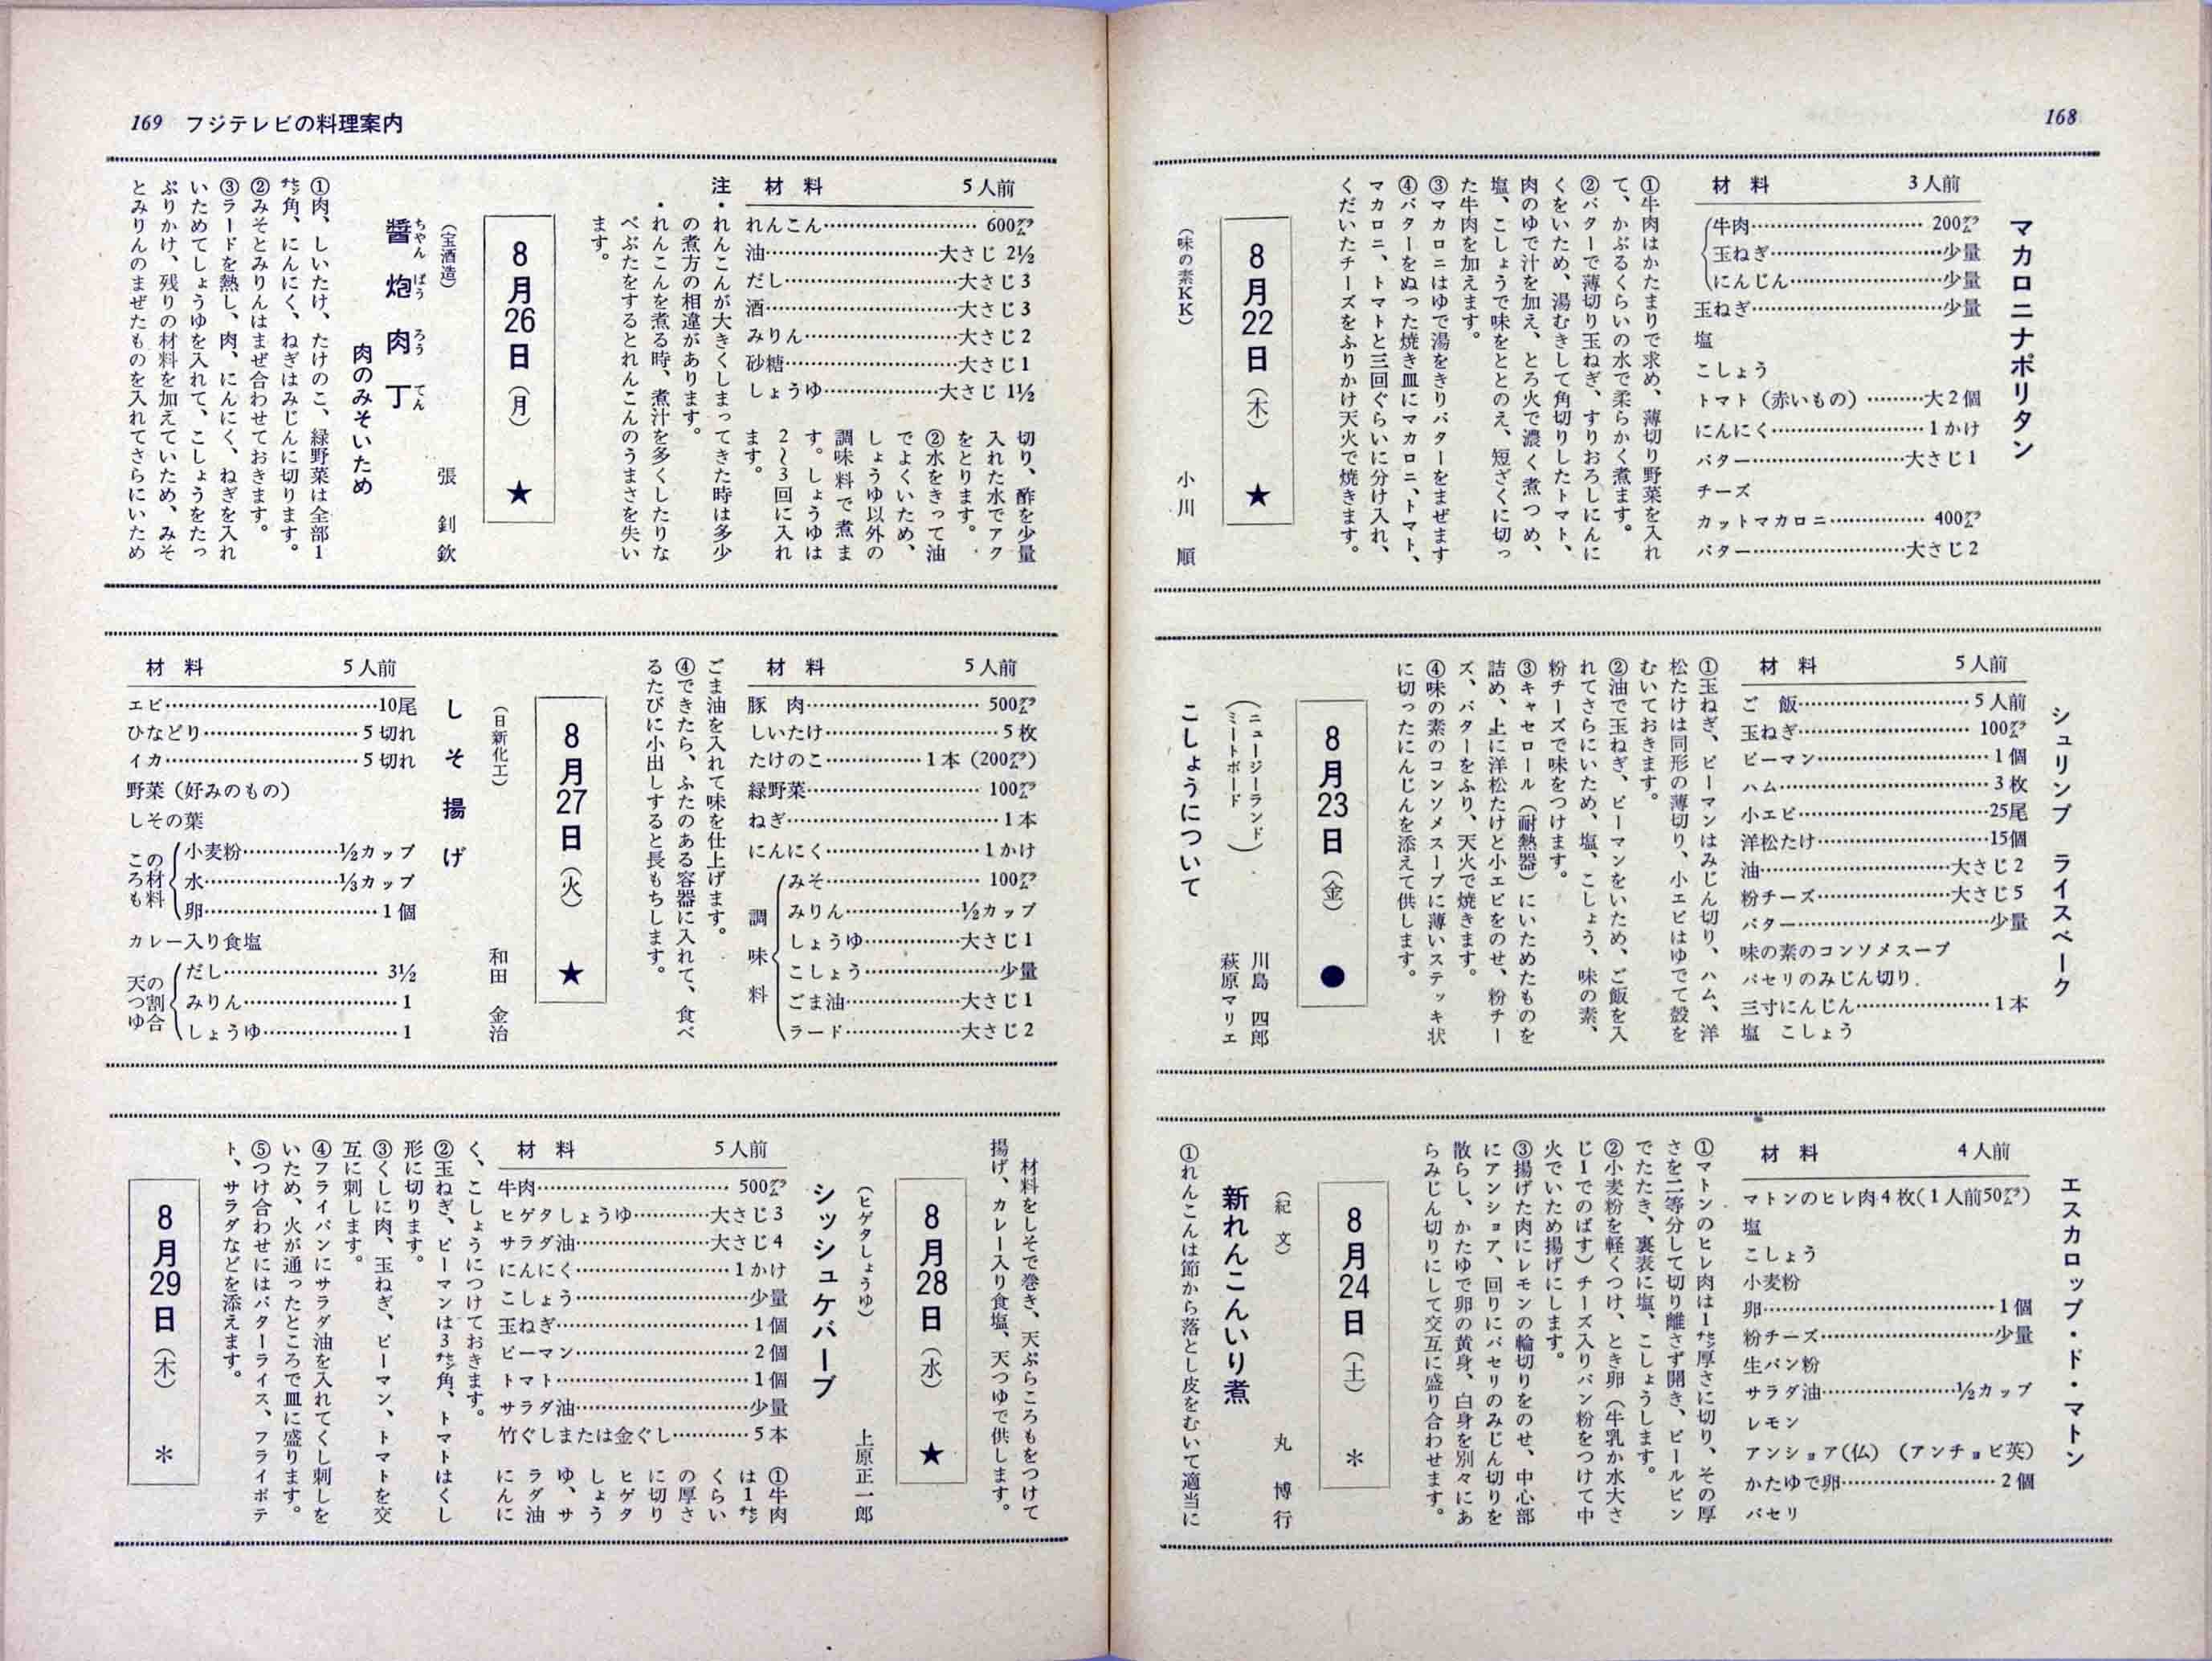 168
マカロニナポリタン
材料 3人前
牛肉…200グラム
玉ねぎ…少量
にんじん…少量
玉ねぎ…少量
塩
こしょう
トマト（赤いもの）…大2個
にんにく…1かけ
バター…大さじ1
チーズ
カットマカロニ…400グラム
バター…大さじ2
①牛肉はかたまりで求め、薄切り野菜を入れ
て、かぶるくらいの水で柔らかく煮ます。
②バターで薄切り玉ねぎ、すりおろしにんに
くをいため、湯むきして角切りしたトマト、
肉のゆで汁を加え、とろ火で濃く煮つめ、
塩、こしょうで味をととのえ、短ざくに切っ
た牛肉を加えます。
③マカロニはゆで湯をきりバターをまぜます
④バターをぬった焼き皿にマカロニ、トマト、
マカロニ、トマトと三回ぐらいに分け入れ、
くだいたチーズをふりかけ天火で焼きます。
8月22日（木）★
（味の素KK） 小川 順
シュリンプ ライスベーク
材料 5人前
ご飯…5人前
玉ねぎ…100グラム
ピーマン…1個
ハム…3枚
小エビ…25尾
洋松たけ…15個
油…大さじ2
粉チーズ…大さじ5
バター…少量
味の素のコンソメスープ
パセリのみじん切り
三寸にんじん…1本
塩 こしょう
①玉ねぎ、ピーマンはみじん切り、ハム、洋
松たけは同形の薄切り、小エビはゆでて殻を
むいておきます。
②油で玉ねぎ、ピーマンをいため、ご飯を入
れてさらにいため、塩、こしょう、味の素、
粉チーズで味をつけます。
③キャセロール（耐熱器）にいためたものを
詰め、上に洋松たけと小エビをのせ、粉チー
ズ、バターをふり、天火で焼きます。
④味の素のコンソメスープに薄いステッキ状
に切ったにんじんを添えて供します。
8月23日（金）●
（ニュージーランド
ミートボード） 川島 四郎
萩原マリエ
こしょうについて
エスカロップ・ド・マトン
材料 4人前
マトンのヒレ肉4枚（1人前50グラム）
塩
こしょう
小麦粉
卵…1個
粉チーズ…少量
生パン粉
サラダ油…½カップ
レモン
アンショア（仏）（アンチョビ英）
かたゆで卵…2個
パセリ
①マトンのヒレ肉は1センチ厚さに切り、その厚
さを二等分して切り離さず開き、ビールビン
でたたき、裏表に塩、こしょうします。
②小麦粉を軽くつけ、とき卵（牛乳か水大さ
じ1でのばす）チーズ入りパン粉をつけて中
火でいため揚げにします。
③揚げた肉にレモンの輪切りをのせ、中心部
にアンショア、回りにパセリのみじん切りを
散らし、かたゆで卵の黄身、白身を別々にあ
らみじん切りにして交互に盛り合わせます。
8月24日（土）＊
（紀文） 丸 博行
新れんこんいり煮
①れんこんは節から落とし皮をむいて適当に
169 フジテレビの料理案内
材料 5人前
れんこん…600グラム
油…大さじ2½
だし…大さじ3
酒…大さじ3
みりん…大さじ2
砂糖…大さじ1
しょうゆ…大さじ1½
切り、酢を少量
入れた水でアク
をとります。
②水をきって油
でよくいため、
しょうゆ以外の
調味料で煮ま
す。しょうゆは
2〜3回に入れ
ます。
注・れんこんが大きくしまってきた時は多少
の煮方の相違があります。
・れんこんを煮る時、煮汁を多くしたりな
べぶたをするとれんこんのうまさを失い
ます。
8月26日（月）★
（宝酒造） 張 釗欽
醬炮肉丁
ちゃんばうろうてん
肉のみそいため
①肉、しいたけ、たけのこ、緑野菜は全部1
センチ角、にんにく、ねぎはみじんに切ります。
②みそとみりんはまぜ合わせておきます。
③ラードを熱し、肉、にんにく、ねぎを入れ
いためてしょうゆを入れて、こしょうをたっ
ぷりかけ、残りの材料を加えていため、みそ
とみりんのまぜたものを入れてさらにいため
材料 5人前
豚肉…500グラム
しいたけ…5枚
たけのこ…1本（200グラム）
緑野菜…100グラム
ねぎ…1本
にんにく…1かけ
調味料
みそ…100グラム
みりん…½カップ
しょうゆ…大さじ1
こしょう…少量
ごま油…大さじ1
ラード…大さじ2
ごま油を入れて味を仕上げます。
④できたら、ふたのある容器に入れて、食べ
るたびに小出しすると長もちします。
8月27日（火）★
（日新化工） 和田 金治
しそ揚げ
材料 5人前
エビ…10尾
ひなどり…5切れ
イカ…5切れ
野菜（好みのもの）
しその葉
このころも材料
小麦粉…½カップ
水…⅓カップ
卵…1個
カレー入り食塩
天つゆの割合
だし…3½
みりん…1
しょうゆ…1
材料をしそで巻き、天ぷらころもをつけて
揚げ、カレー入り食塩、天つゆで供します。
8月28日（水）★
（ヒゲタしょうゆ） 上原正一郎
シッシュケバーブ
材料 5人前
牛肉…500グラム
ヒゲタしょうゆ…大さじ3
サラダ油…大さじ4
にんにく…1かけ
こしょう…少量
玉ねぎ…1個
ピーマン…2個
トマト…1個
サラダ油…少量
竹ぐしまたは金ぐし…5本
①牛肉
は1センチ
くらい
の厚さ
に切り
ヒゲタ
しょう
ゆ、サ
ラダ油
にんに
く、こしょうにつけておきます。
②玉ねぎ、ピーマンは3センチ角、トマトはくし
形に切ります。
③くしに肉、玉ねぎ、ピーマン、トマトを交
互に刺します。
④フライパンにサラダ油を入れてくし刺しを
いため、火が通ったところで皿に盛ります。
⑤つけ合わせにはバターライス、フライポテ
ト、サラダなどを添えます。
8月29日（木）＊